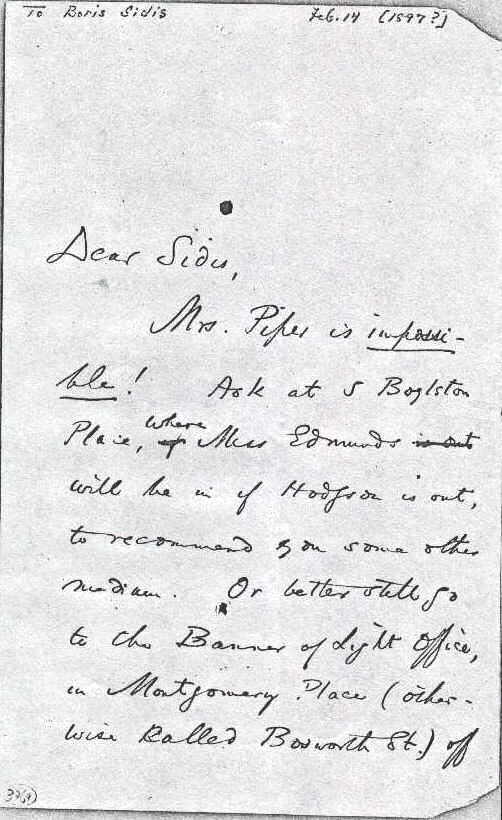 To Boris Sidis Feb. 14 [1897?]
Dear Sidis,
Mrs. Piper is impossi-
ble! Ask at 5 Boylston
Place, where Miss Edmunds is out
will be in if Hodgson is out,
to recommend you some other
medium. Or better still go
to the Banner of Light Office,
in Montgomery Place (other-
wise called Bosworth St.) off